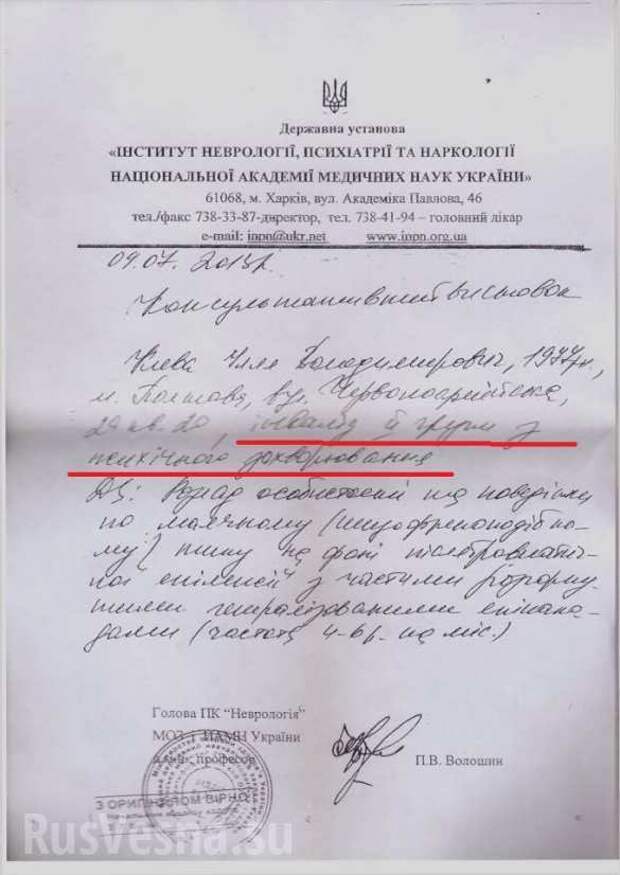 Державна установа
«ІНСТИТУТ НЕВРОЛОГІЇ, ПСИХІАТРІЇ ТА НАРКОЛОГІЇ
НАЦІОНАЛЬНОЇ АКАДЕМІЇ МЕДИЧНИХ НАУК УКРАЇНИ»
61068, м. Харків, вул. Академіка Павлова, 46
тел./факс 738-33-87-директор, тел. 738-41-94 – головний лікар
e-mail: inpn@ukr.net www.inpn.org.ua
09.07. 2013р.
Консультативний висновок
Кива Ілля Володимирович, 1977р.,
м. Полтава, вул. Червоноармійська,
інвалід ІІ групи з
психічного захворювання
Дз: Розлад особистості та поведінки
по маячному (шизофреноподібно-
му) типу на фоні післятравматич-
ної епілепсії з частими
генералізованими епінапа-
дами (частота 4-6р. на міс.)
Голова ПК "Неврологія"
МОЗ і НАМН України
д.м.н., професор
П.В. Волошин
З ОРИГІНАЛОМ ВІРНО
RusVesna.su